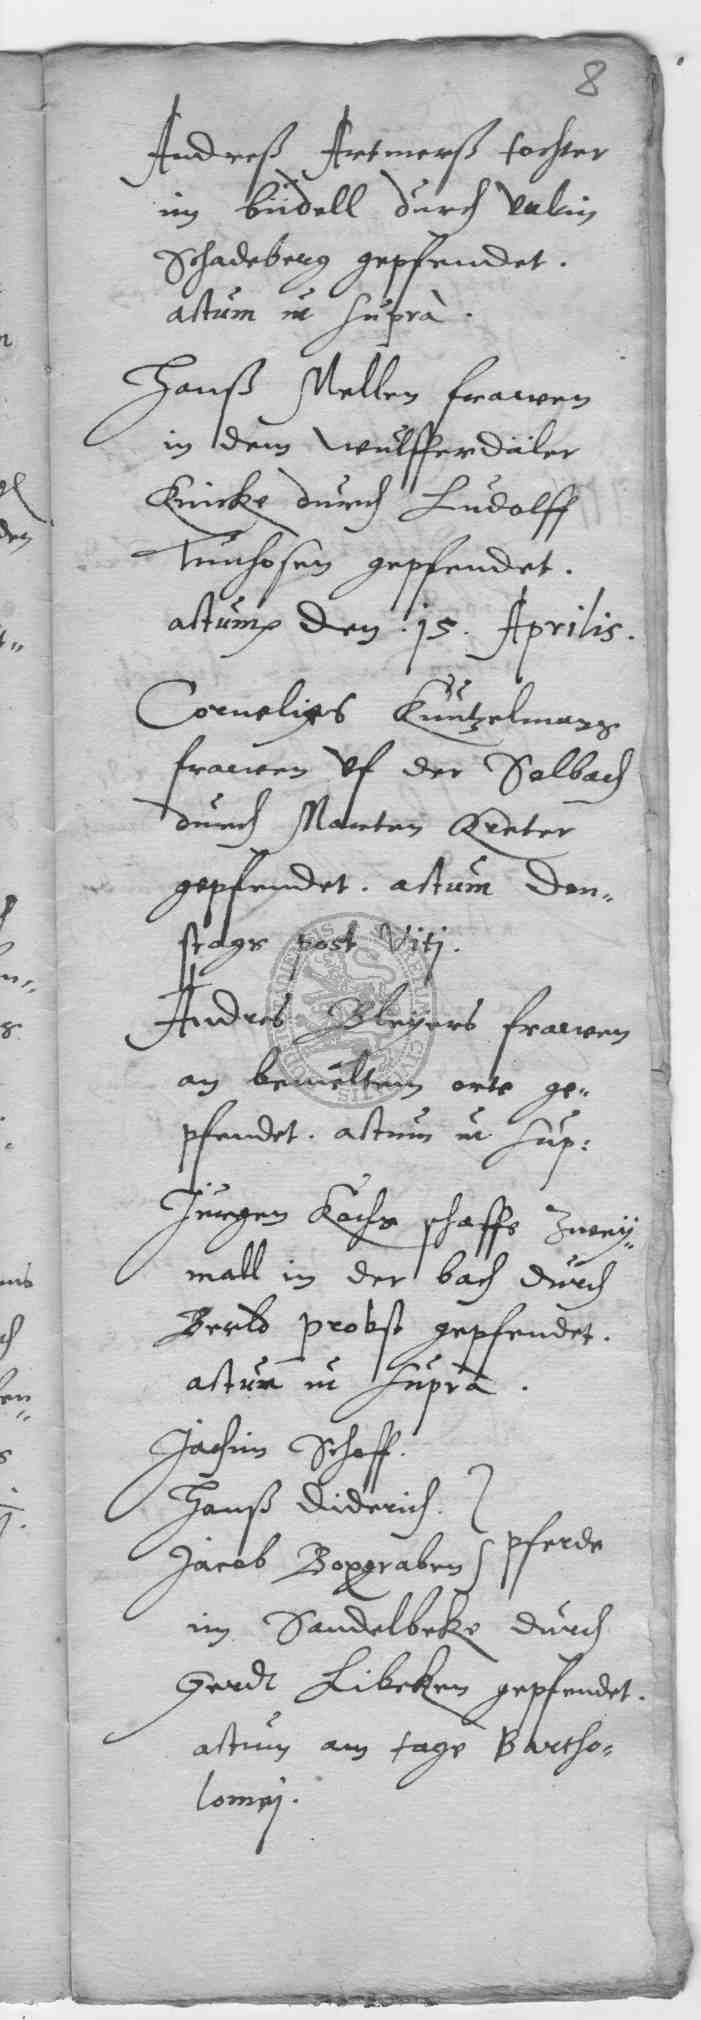 8
Andreß Artmerß tochter
im büdell durch Valtin
Schadeberg gepfendet.
actum ut supra.
Hanß Mellen frawen
in dem wulfferdäler
Knicke durch Ludolff
Tunhosen gepfendet.
actum den 15. Aprilis.
Cornelius Küntzelmans
frawen uf der Salbach
durch Marten Kreter
gepfendet. actum Don„
stags post Viti.
Andres Bleyers frawen
an bemeltem orte ge„
pfendet. actum ut sup:
Jürgen Kochs schaffe zwey„
mall in der bach durch
Berld probst gepfendet.
actum ut supra.
Jachim Schaff.
Hanß Diderich.
Jacob Boxgraben pferde
im Sandelbeke durch
Gerdt Libeken gepfendet.
actum am tage Bartho„
lomej.